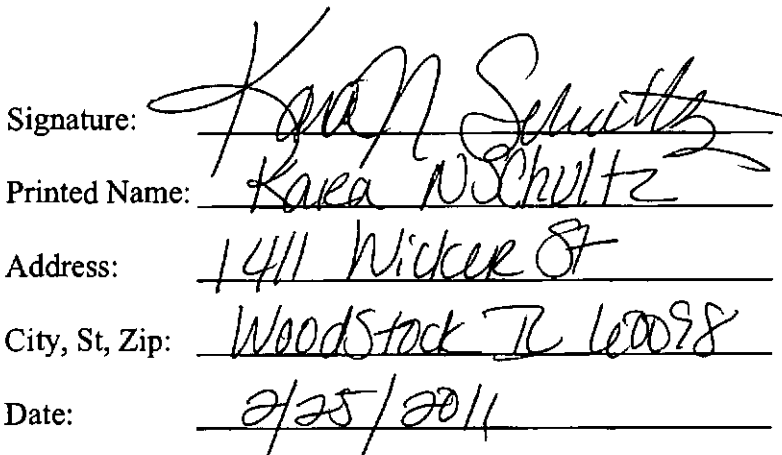 Signature: Kara N Schultz
Printed Name: Kara N Schultz
Address: 1411 Wicker St
City, St, Zip: Woodstock IL 60098
Date: 2/25/2011